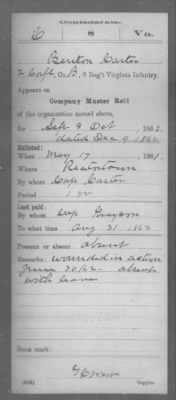 Confederate.
C 8 Va.
Benton Carter
2 Corpl, Co. B, 8 Reg't Virginia Infantry.
Appears on
Company Muster Roll
of the organization named above,
for Sept & Oct, 1862.
dated Dec 9, 1862
Enlisted:
When May 17, 1861.
Where Rectortown
By whom Cap Carter
Period 1 yr
Last paid:
By whom Cap Grayson
To what time Aug 31, 1862
Present or absent absent
Remarks: wounded in action
June 30/62. absent
with leave
Book mark:
(642) Copyist.